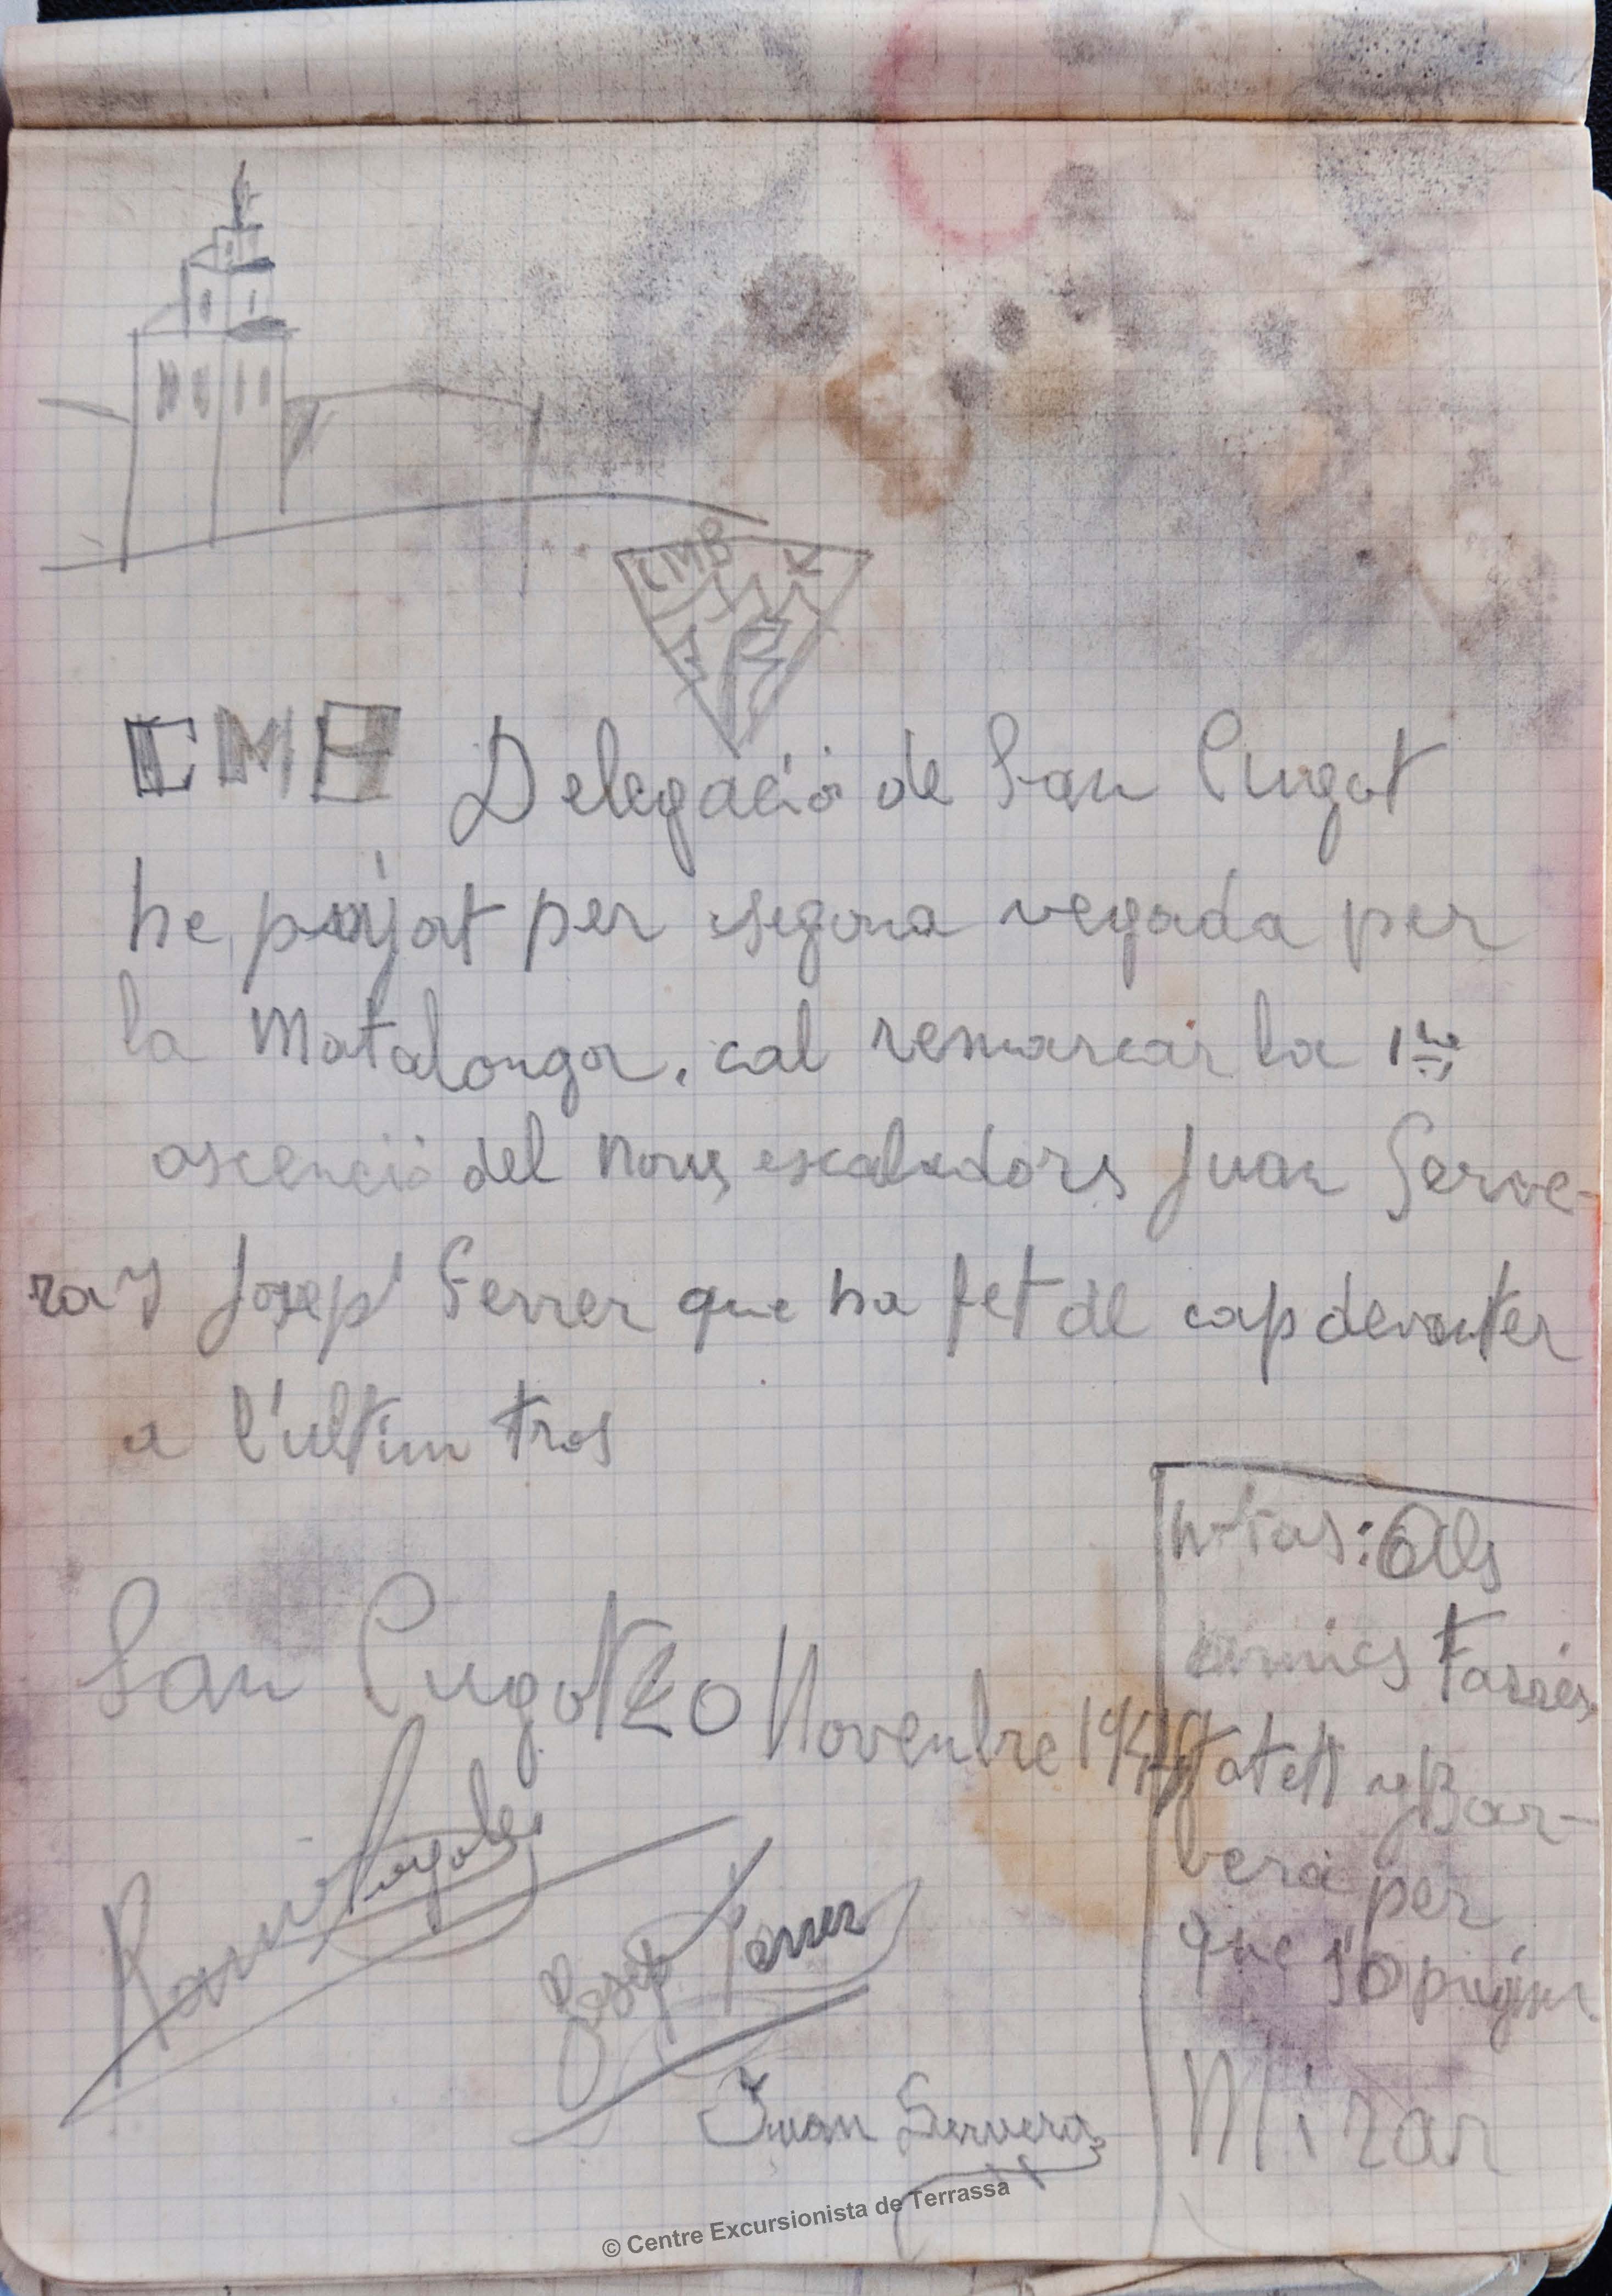 CMB
CMB Delegació de San Cugat
he pujat per segona vegada per
la Matalonga, cal remarcar la 1ra
ascenció del nous escaladors Juan Serve-
ra y Josep Ferrer que ha fet de cap devanter
a l'ultim tros
San Cugat 20 Novembre 194
Ramon
Josep Ferrer
Juan Servera
Notas: Als
amics Farrés,
Gatell y Bar-
berá per
que s'o pugin
Mirar
© Centre Excursionista de Terrassa